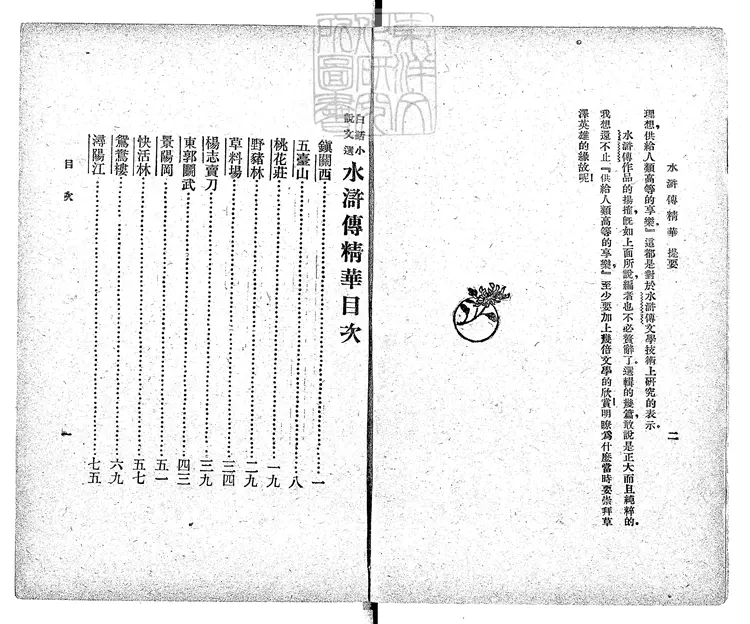 水滸傳精華 提要
二
理想，供給人類高等的享樂。』這都是對於水滸傳文學技術上研究的表示。
水滸傳作品的揚搉，旣如上面所說，編者也不必贅辭了。選輯的幾篇，敢說是正大而且純粹的。
我想還不止『供給人類高等的享樂，』至少要加上幾倍文學的欣賞！明瞭爲什麼當時要崇拜草
澤英雄的緣故呢！
白話小說文選 水滸傳精華目次
鎭關西 一
五臺山 八
桃花莊 一九
野豬林 二九
草料場 三四
楊志賣刀 三九
東郭鬭武 四三
景陽岡 五一
快活林 五七
鴛鴦樓 六九
潯陽江 七五
目次
一